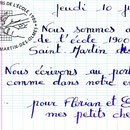 jeudi 10 j
DE L'ECOLE 1900
ST-MARTIN-DES-OLMES
Nous sommes a
de l'école 1900
Saint Martin des
Nous écrivons au por
comme dans notre es
pour Florian et
mes petits che